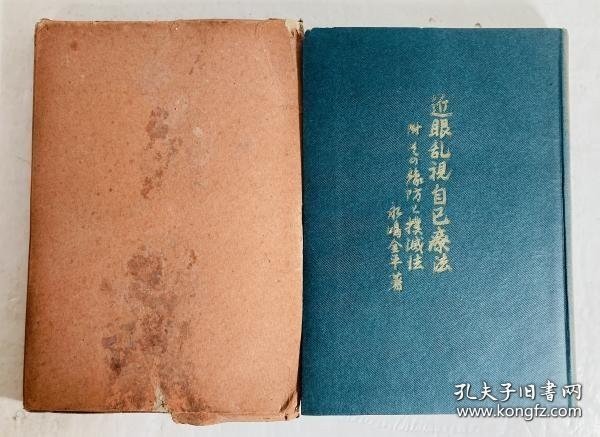 近眼乱視自己療法
附その予防と撲滅法
永嶋金平著
孔夫子旧书网
www.kongfz.com